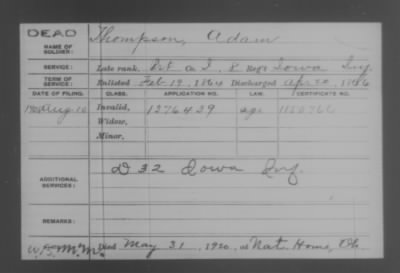 DEAD
NAME OF SOLDIER: Thompson, Adam
SERVICE: Late rank, Pvt Co. I, R Reg't Iowa Inf.
TERM OF SERVICE: Enlisted Feb 19, 1864 Discharged Apr 1866
DATE OF FILING. CLASS. APPLICATION NO. LAW. CERTIFICATE NO.
Aug 10 Invalid, 1276429 age
Widow,
Minor,
ADDITIONAL SERVICES: D 32 Iowa Inf.
REMARKS:
Died May 31, 1920, at Nat. Home, Oh